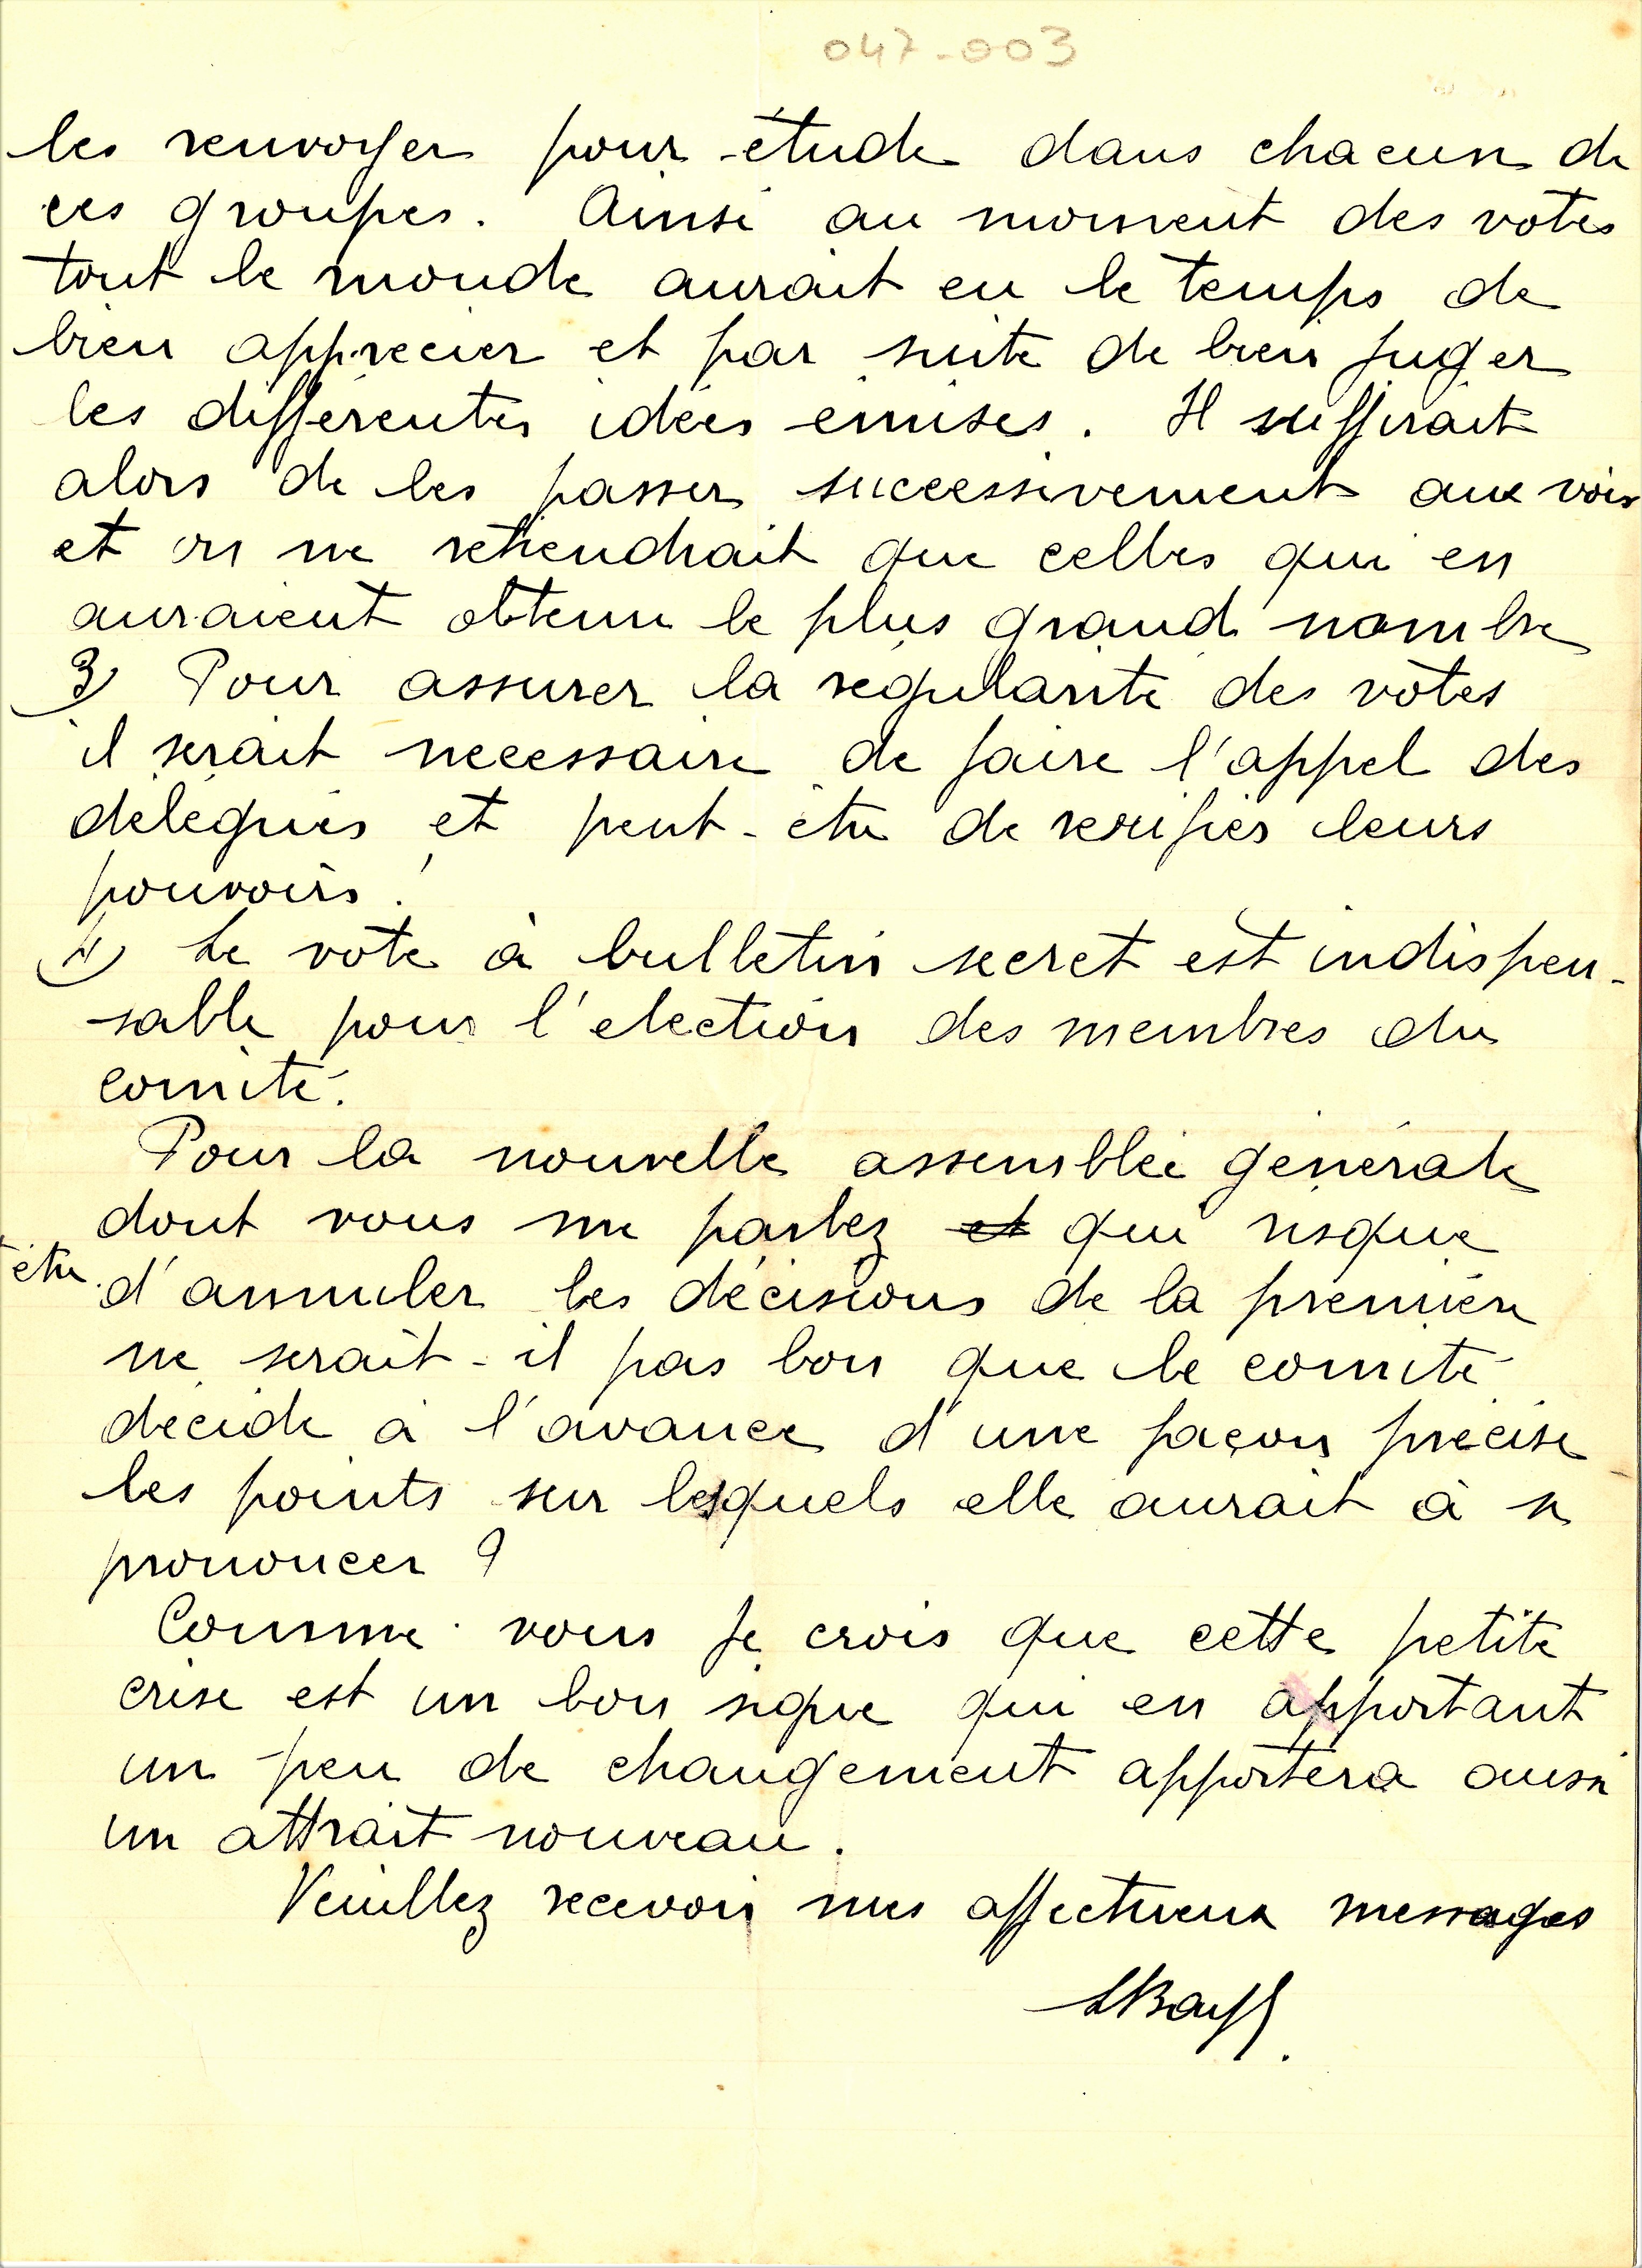 047-003
les renvoyer pour étude dans chacun de
ces groupes. Ainsi au moment des votes
tout le monde aurait eu le temps de
bien apprecier et par suite de bien juger
les differentes idées emises. Il suffirait
alors de les passer successivement aux voix
et on ne retiendrait que celles qui en
auraient obtenu le plus grand nombre
3) Pour assurer la regularité des votes
il serait necessaire de faire l'appel des
delegués et peut-être de verifier leurs
pouvoirs.
4) Le vote à bulletin secret est indispen-
sable pour l'election des membres du
comité.
Pour la nouvelle assemblée generale
dont vous me parlez et qui risque
être d'annuler les décisions de la première
ne serait-il pas bon que le comité
decide à l'avance d'une façon précise
les points sur lesquels elle aurait à se
prononcer ?
Comme vous je crois que cette petite
crise est un bon signe qui en apportant
un peu de changement apportera aussi
un attrait nouveau.
Veuillez recevoir mes affectueux messages